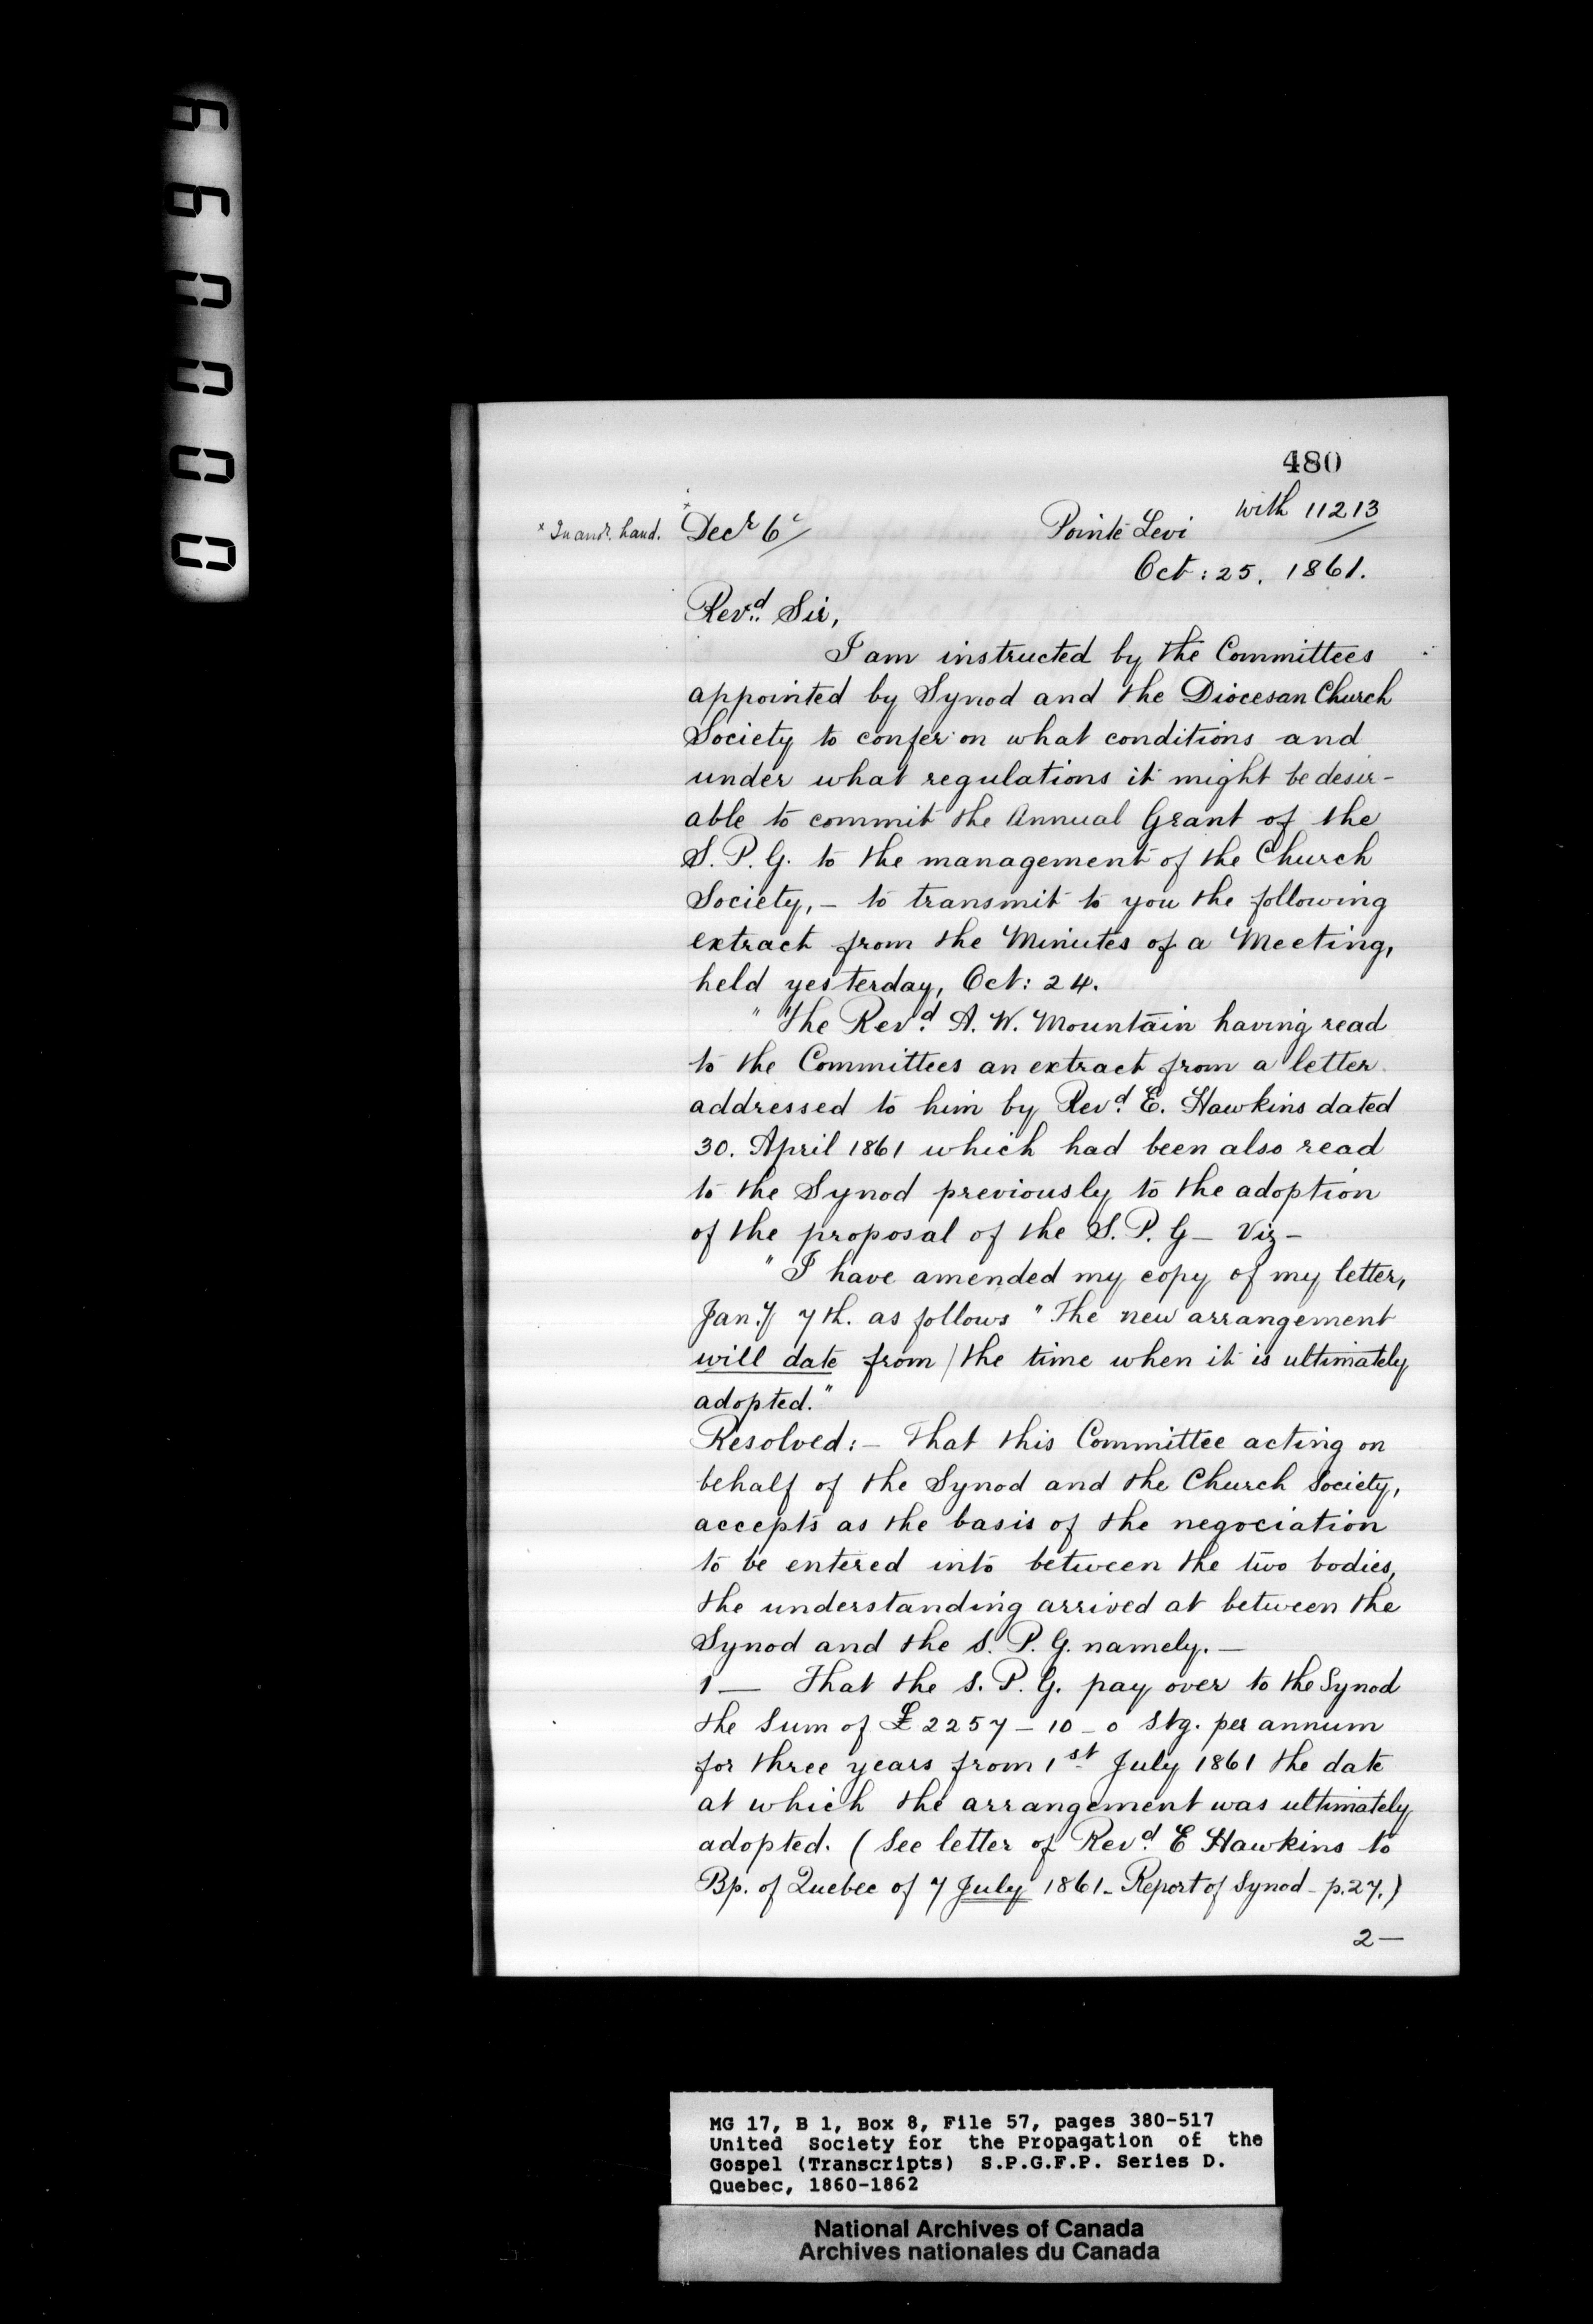 000099
480
with 11213
× In anor. hand.
× Decr 6
Pointe Levi
Oct: 25, 1861.
Revd. Sir,
I am instructed by the Committees
appointed by Synod and the Diocesan Church
Society to confer on what conditions and
under what regulations it might be desir-
able to commit the Annual Grant of the
S. P. G. to the management of the Church
Society, — to transmit to you the following
extract from the Minutes of a Meeting,
held yesterday, Oct: 24.
" The Revd. A. W. Mountain having read
to the Committees an extract from a letter
addressed to him by Revd. E. Hawkins dated
30. April 1861 which had been also read
to the Synod previously to the adoption
of the proposal of the S. P. G — Viz —
" I have amended my copy of my letter,
Jan.y 7th. as follows " The new arrangement
will date from / the time when it is ultimately
adopted."
Resolved: — That this Committee acting on
behalf of the Synod and the Church Society,
accepts as the basis of the negociation
to be entered into between the two bodies,
the understanding arrived at between the
Synod and the S. P. G. namely. —
1 — That the S. P. G. pay over to the Synod
the Sum of £2257 — 10 — 0 Stg. per annum
for three years from 1st July 1861 the date
at which the arrangement was ultimately
adopted. ( See letter of Revd. E Hawkins to
Bp. of Quebec of 7 July 1861 — Report of Synod — p. 27.)
2 —
MG 17, B 1, Box 8, File 57, pages 380-517
United Society for the Propagation of the
Gospel (Transcripts) S.P.G.F.P. Series D.
Quebec, 1860-1862
National Archives of Canada
Archives nationales du Canada